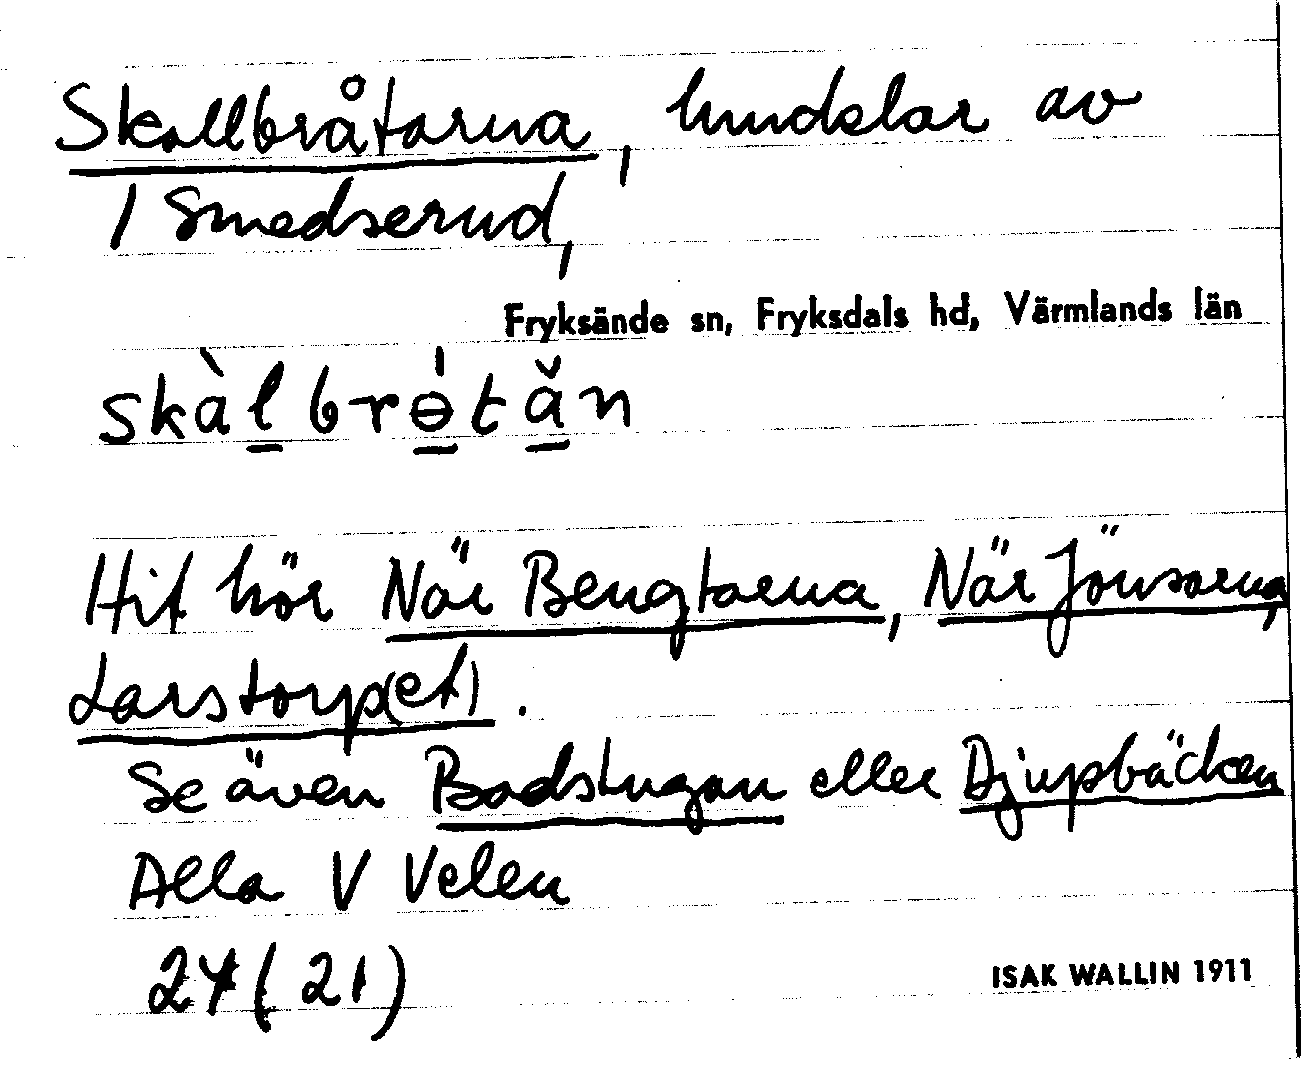 Skallbråtarna, hmdelar av
1 Smedserud,
Fryksände sn, Fryksdals hd, Värmlands län
skàlbrɵ́tăn
Hit hör När Bengtarna, När Jönsarna,
Larstorp(et).
Se även Badstugan eller Djupbäcken
Alla V Velen
24 (21)
ISAK WALLIN 1911